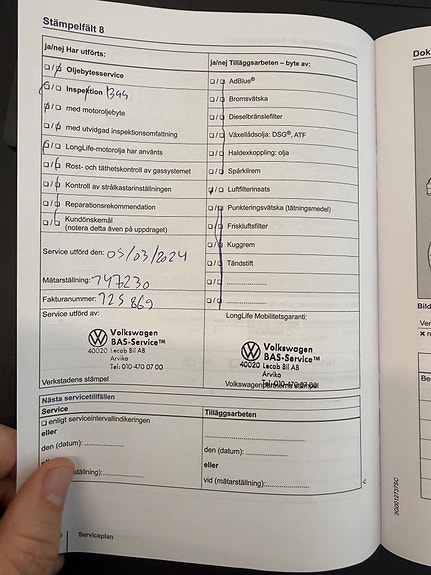 Stämpelfält 8
ja/nej Har utförts:
▢/▢ Oljebytesservice
▢/▢ Inspektion
▢/▢ med motoroljebyte
▢/▢ med utvidgad inspektionsomfattning
▢/▢ LongLife-motorolja har använts
▢/▢ Rost- och täthetskontroll av gassystemet
▢/▢ Kontroll av strålkastarinställningen
▢/▢ Reparationsrekommendation
▢/▢ Kundönskemål
(notera detta även på uppdraget)
Service utförd den: 05/03/2024
Mätarställning: 147230
Fakturanummer: 125869
ja/nej Tilläggsarbeten – byte av:
▢/▢ AdBlue®
▢/▢ Bromsvätska
▢/▢ Dieselbränslefilter
▢/▢ Växellådsolja: DSG®, ATF
▢/▢ Haldexkoppling: olja
▢/▢ Spårkilrem
▢/▢ Luftfilterinsats
▢/▢ Punkteringsvätska (tätningsmedel)
▢/▢ Friskluftsfilter
▢/▢ Kuggrem
▢/▢ Tändstift
▢/▢ ....................
▢/▢ ....................
Service utförd av:
Volkswagen
BAS-Service™
40020 Lecab Bil AB
Arvika
Tel: 010-470 07 00
Verkstadens stämpel
LongLife Mobilitetsgaranti:
Volkswagen
BAS-Service™
40020 Lecab Bil AB
Arvika
Tel: 010-470 07 00
stämpel
Nästa servicetillfällen
Service
▢ enligt serviceintervallindikeringen
eller
den (datum):....................
(mätarställning):....................
Tilläggsarbeten
....................
den (datum):....................
eller
vid (mätarställning):....................
Serviceplan
Dok
Bild
Ver
Be
3G0012737SC